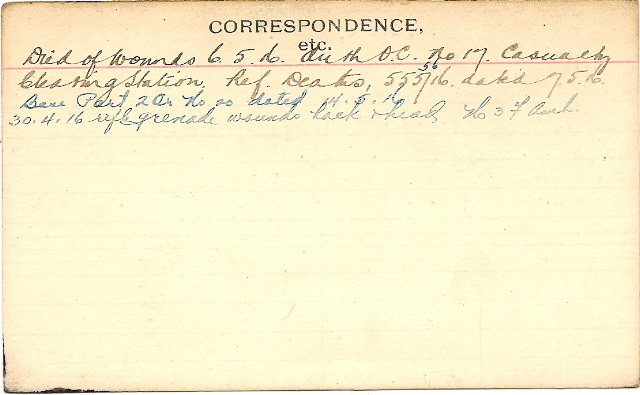 CORRESPONDENCE,
etc.
Died of Wounds 6.5.16. Auth O.C. No 17. Casualty
Clearing Station. Ref. Deaths, 555/16. dated 7.5.16.
Base Part 2 Or No 20 dated 14.5.16
30.4.16 rifle grenade wounds back & head No 3 F Amb.